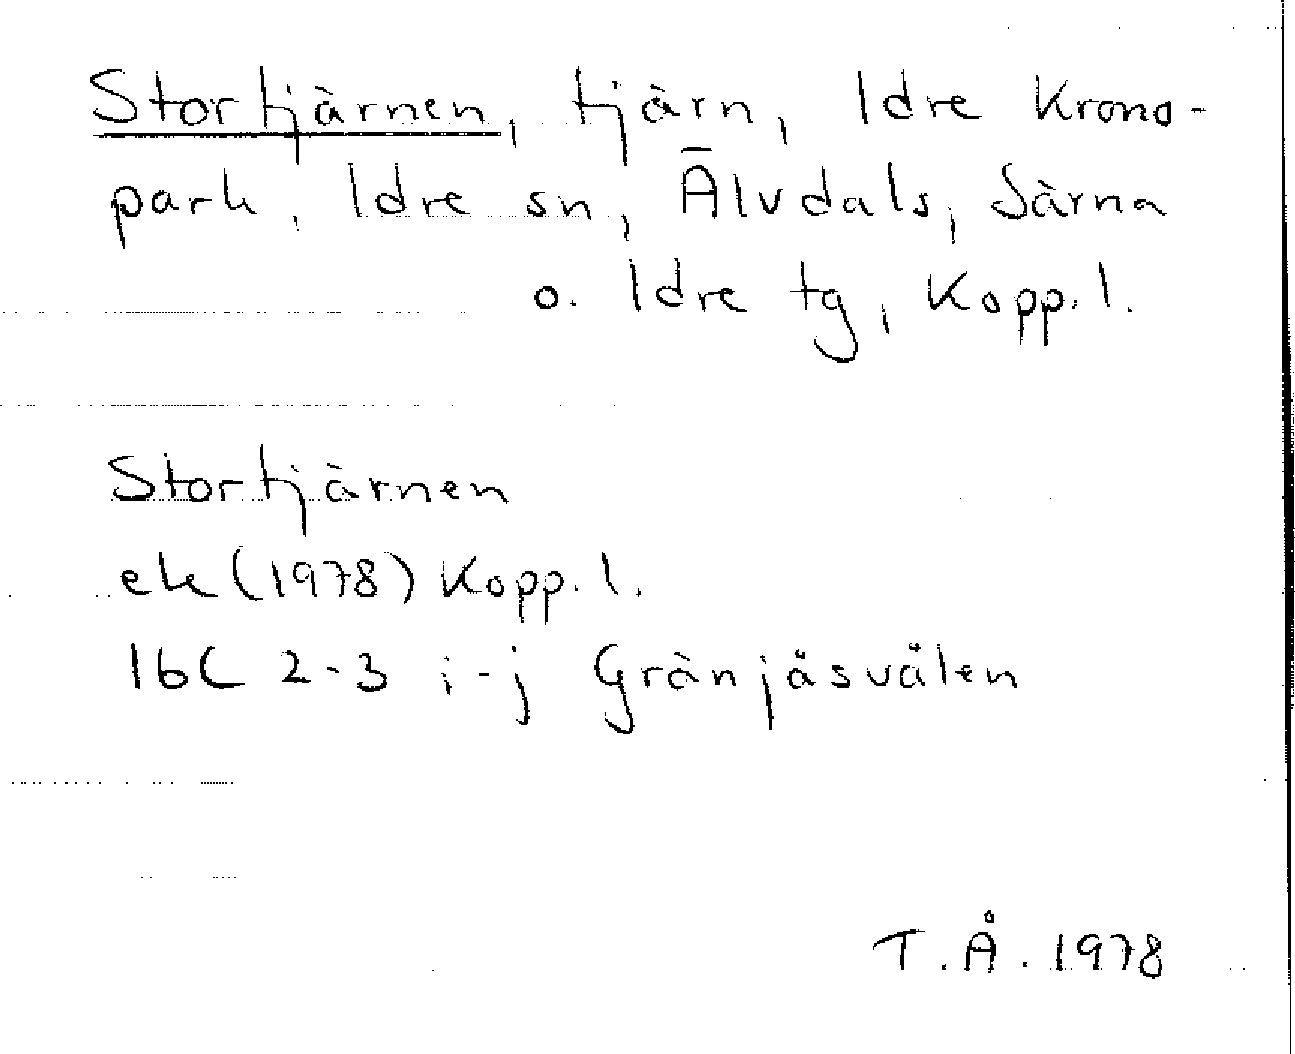 Stortjärnen, tjärn, Idre Krono-
park, Idre sn, Älvdals, Särna
o. Idre tg, Kopp. l.
Stortjärnen
ek (1978) Kopp. l.
16C 2-3 i-j Gränjåsvålen
T. Å. 1978